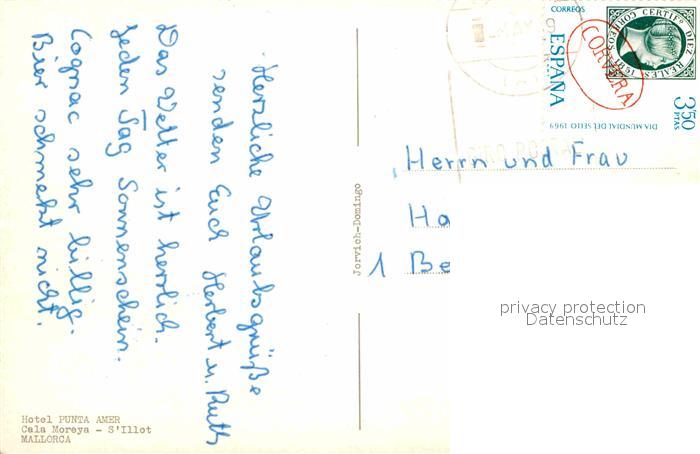 Herzliche Urlaubsgrüße
senden Euch Herbert u. Ruth
Das Wetter ist herrlich.
Jeden Tag Sonnenschein.
Cognac sehr billig.
Bier schmekt nicht.
Hotel PUNTA AMER
Cala Moreya - S'Illot
MALLORCA
Jorvich-Domingo
CORREOS
ESPAÑA
CORREOS 1851 CERTIFº DIEZ REALES
CORVERA
3'50
PTAS
DIA MUNDIAL DEL SELLO 1969
Herrn und Frau
Ha
1 Be
privacy protection
Datenschutz